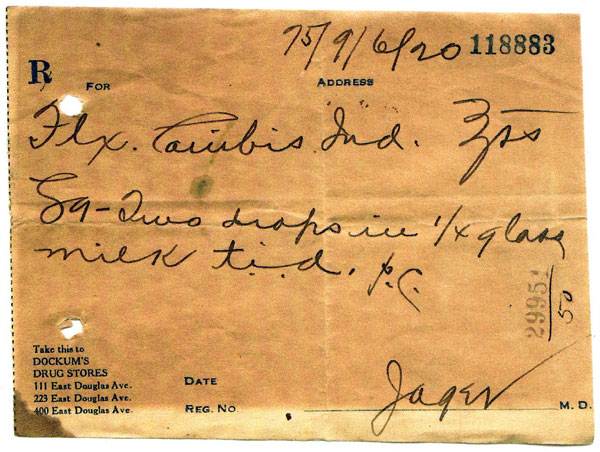 75/9/6/20 118883
R
FOR ADDRESS
Flx. Canibis Ind. ʒss
Sg- Two drops in 1/4 glass
milk t.i.d. p.c.
29951
50
Take this to
DOCKUM'S
DRUG STORES
111 East Douglas Ave.
223 East Douglas Ave.
400 East Douglas Ave.
DATE
REG. NO
Jager M.D.